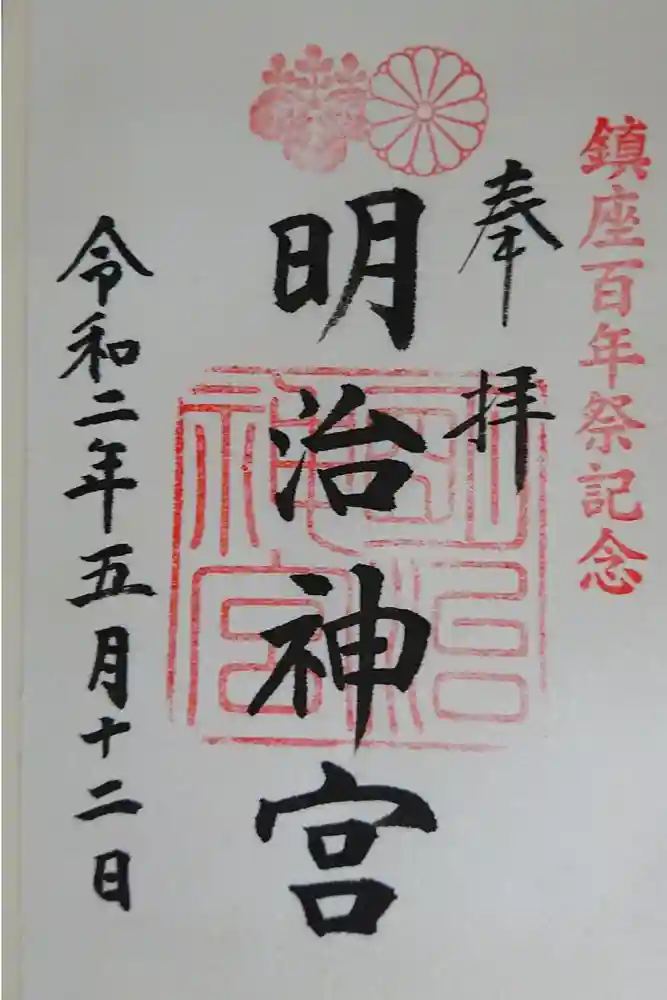 鎮座百年祭記念
奉拝
明治神宮
明治神宮
令和二年五月十二日